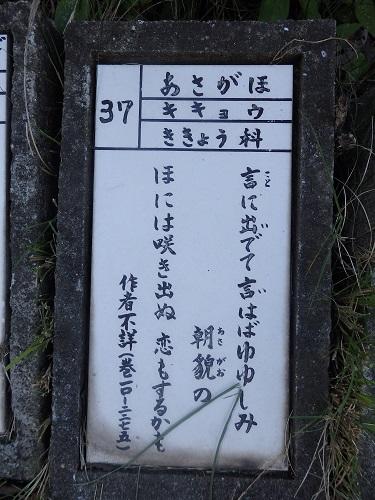 37
あさがほ
キキョウ
ききょう科
言に出でて言はばゆゆしみ
朝貌の
ほには咲き出ぬ 恋もするかも
作者不詳(巻一〇-二二七五)
こと
い
い
あさがお